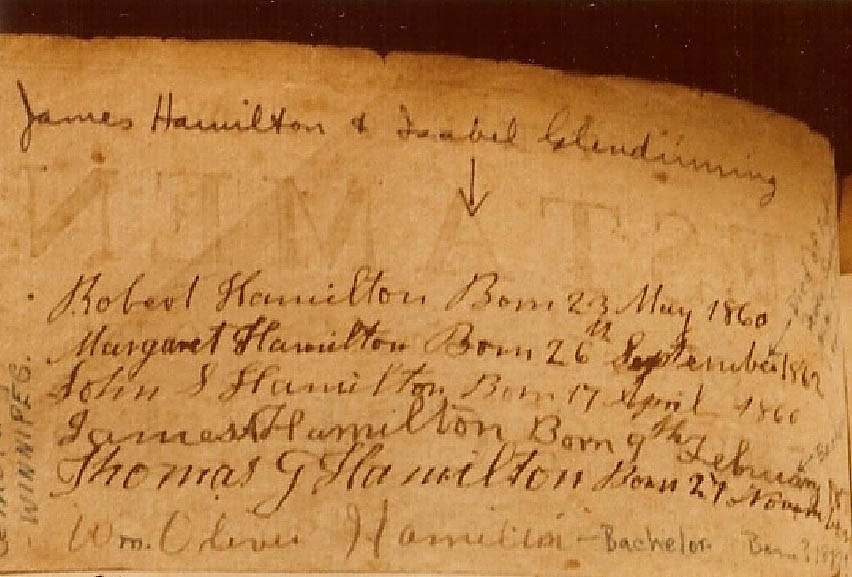 James Hamilton & Isabel Glendinning
Robert Hamilton Born 23 May 1860
Margaret Hamilton Born 26th September 1862
John S Hamilton Born 17 April 1866
James Hamilton Born 9th February
Thomas G Hamilton Born 27 November
Wm. Oliver Hamilton - Bachelor Born ?
- WINNIPEG.